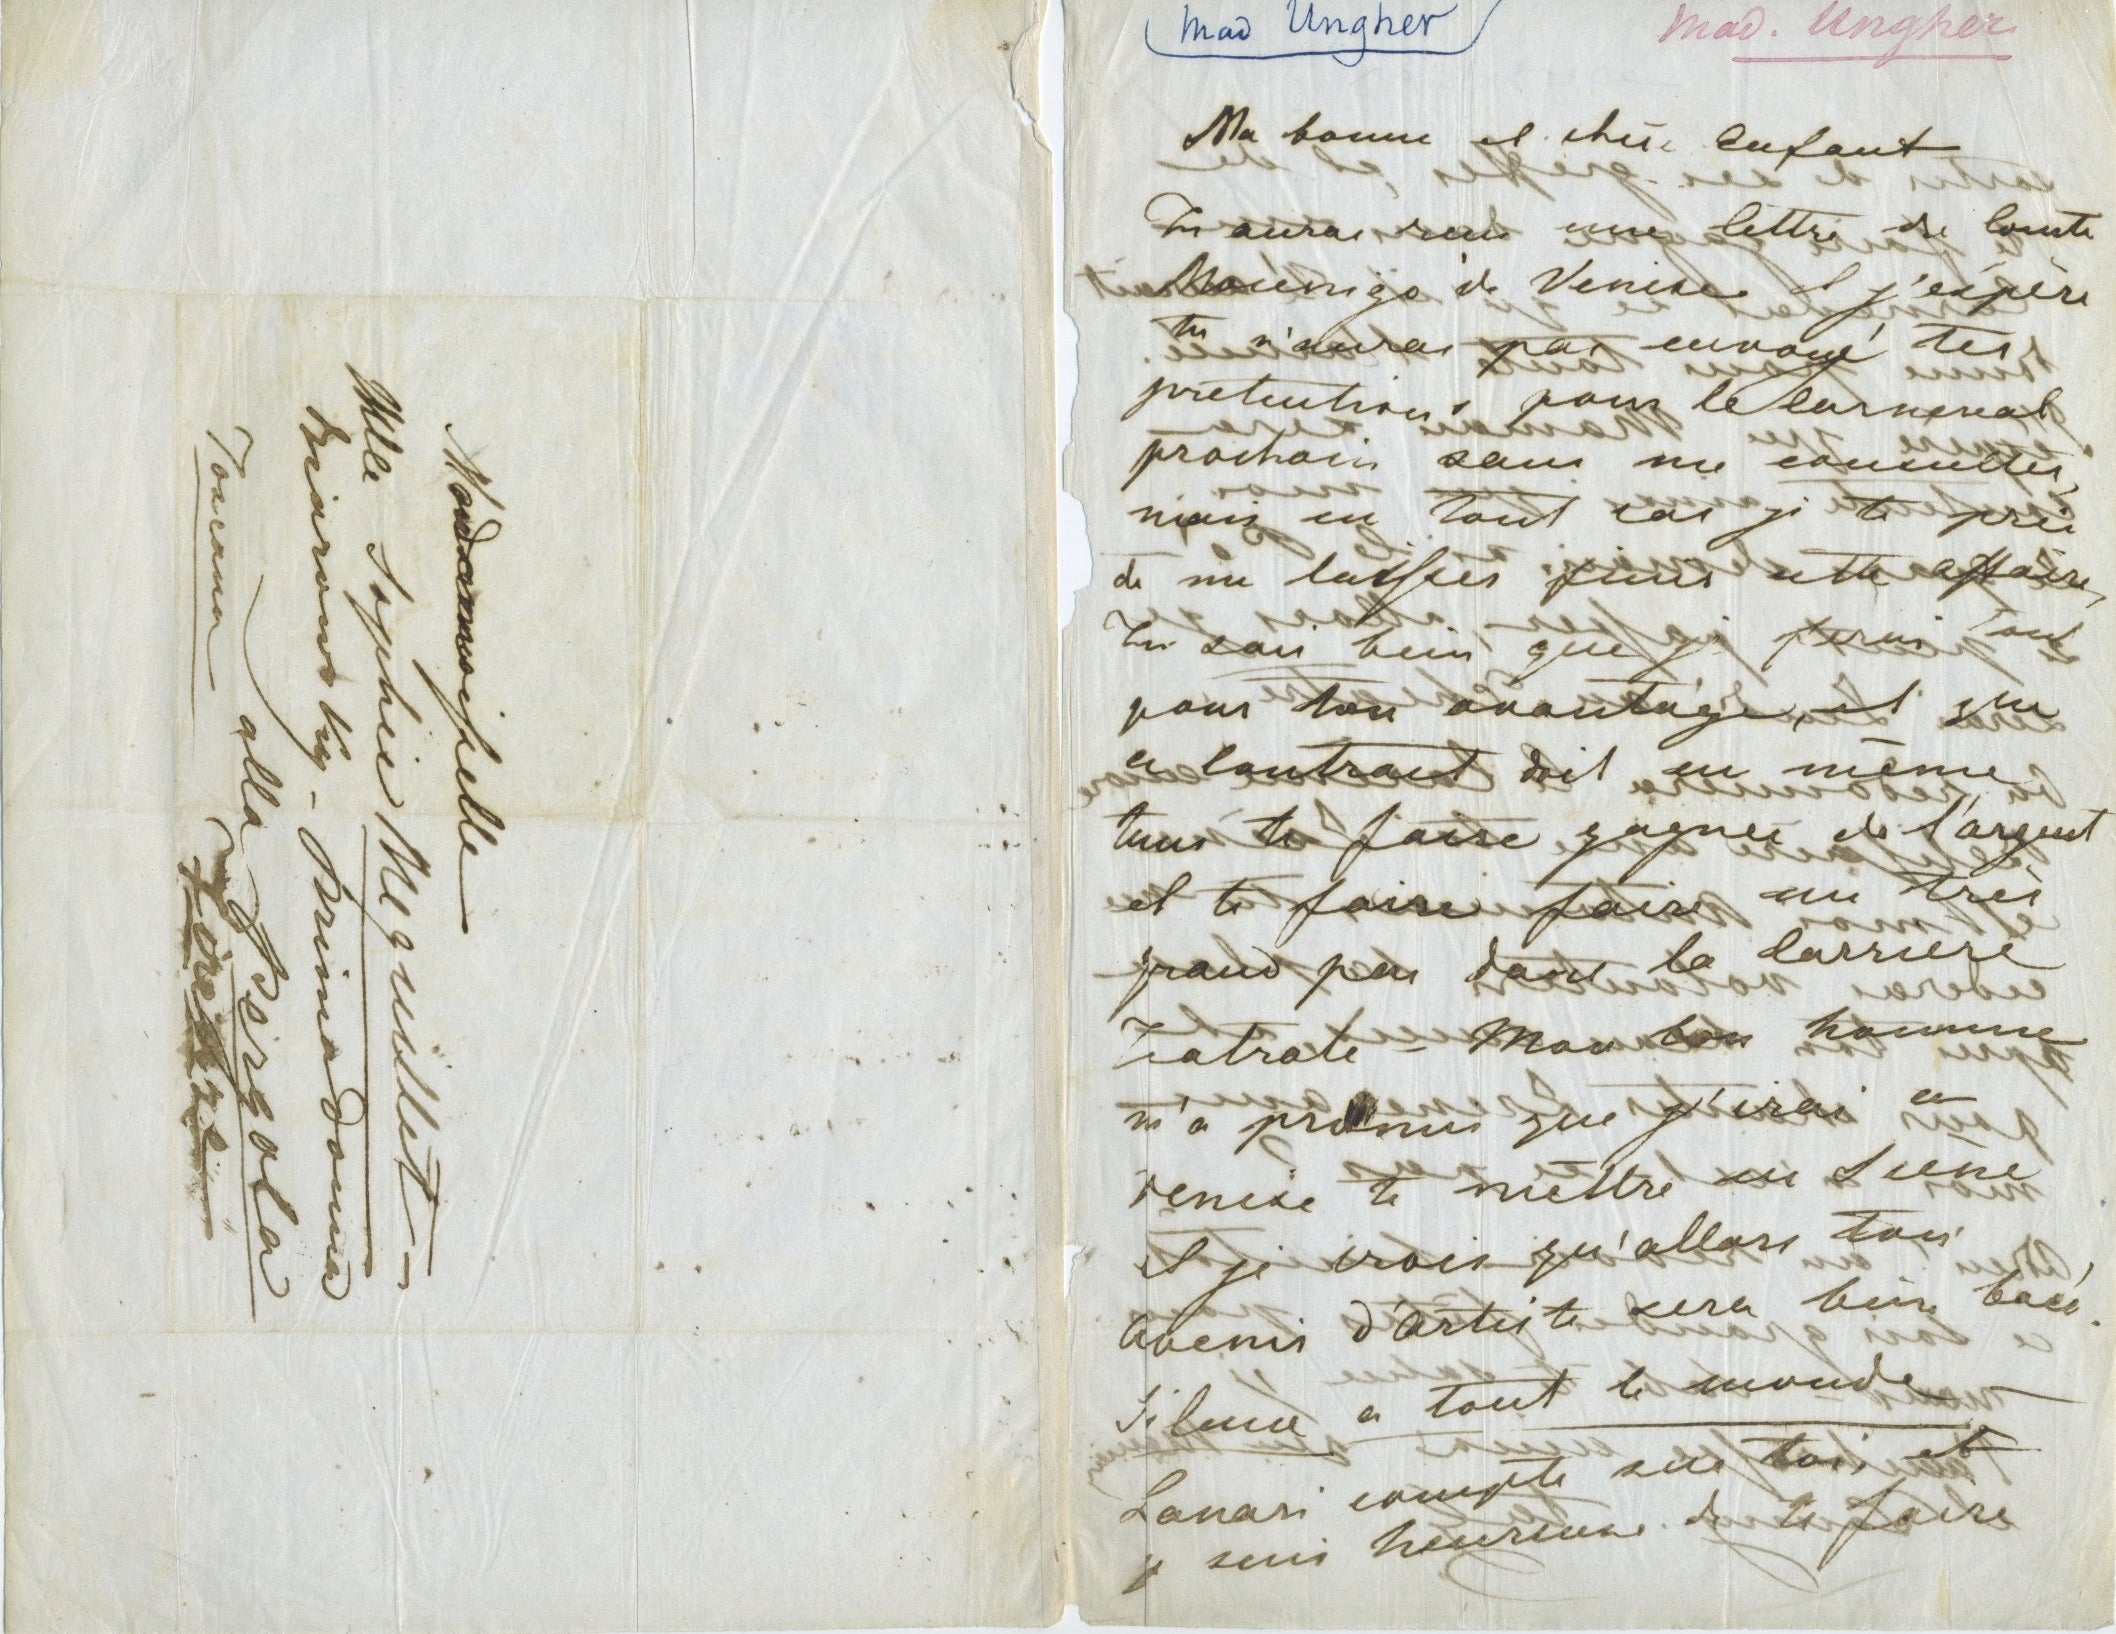 Madamoiselle
Mlle Sophie Mequillet
Prima donna
alla Pergola
Toscana
Mad Ungher
Mad. Ungher
Ma bonne et chère Enfant
Tu auras reçu une lettre de Comte
Mocenigo de Venise et j'espère
tu n'auras pas envoyé tes
pretentions pour le Carneval
prochain sans me consulter,
mais en tout cas je te prie
de me laisser finir cette affaire,
Tu sais bien que je ferai tout
pour ton avantage, et que
ce Contract doit en même
tems te faire gagner de l'argent
et te faire faire un très
grand pas dans la Carriere
Teatrale - Mon bon homme
m'a promis que j'irai a
Venise te mettre en Scène
et je crois qu'allors ton
avenir d'artiste sera bien
Silence a tout le monde
Lanari compte sur toi et
je suis heureuse de te faire